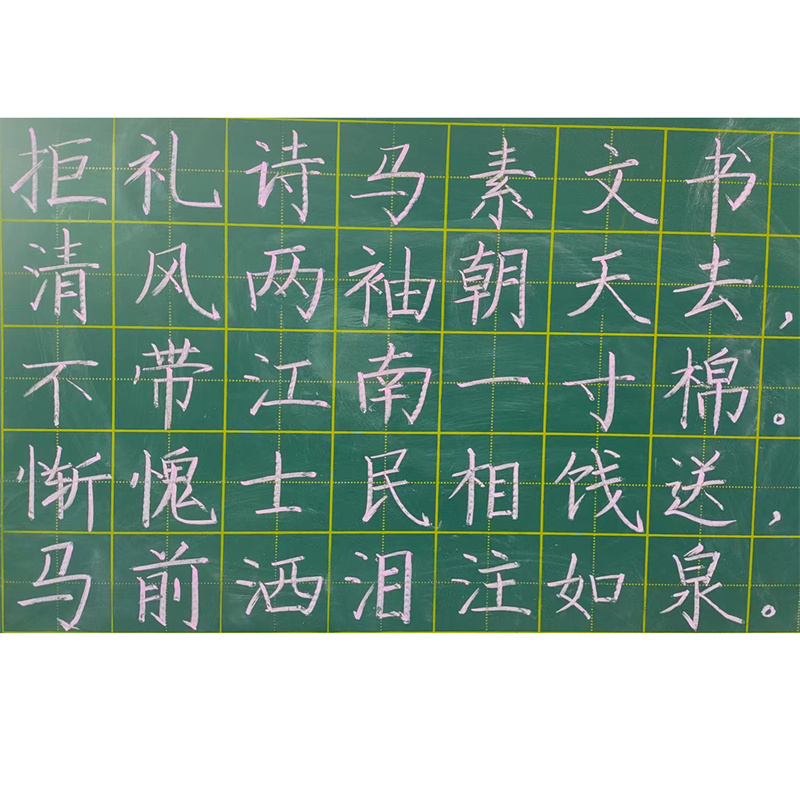 拒礼诗马素文书
清风两袖朝天去，
不带江南一寸棉。
惭愧士民相饯送，
马前洒泪注如泉。